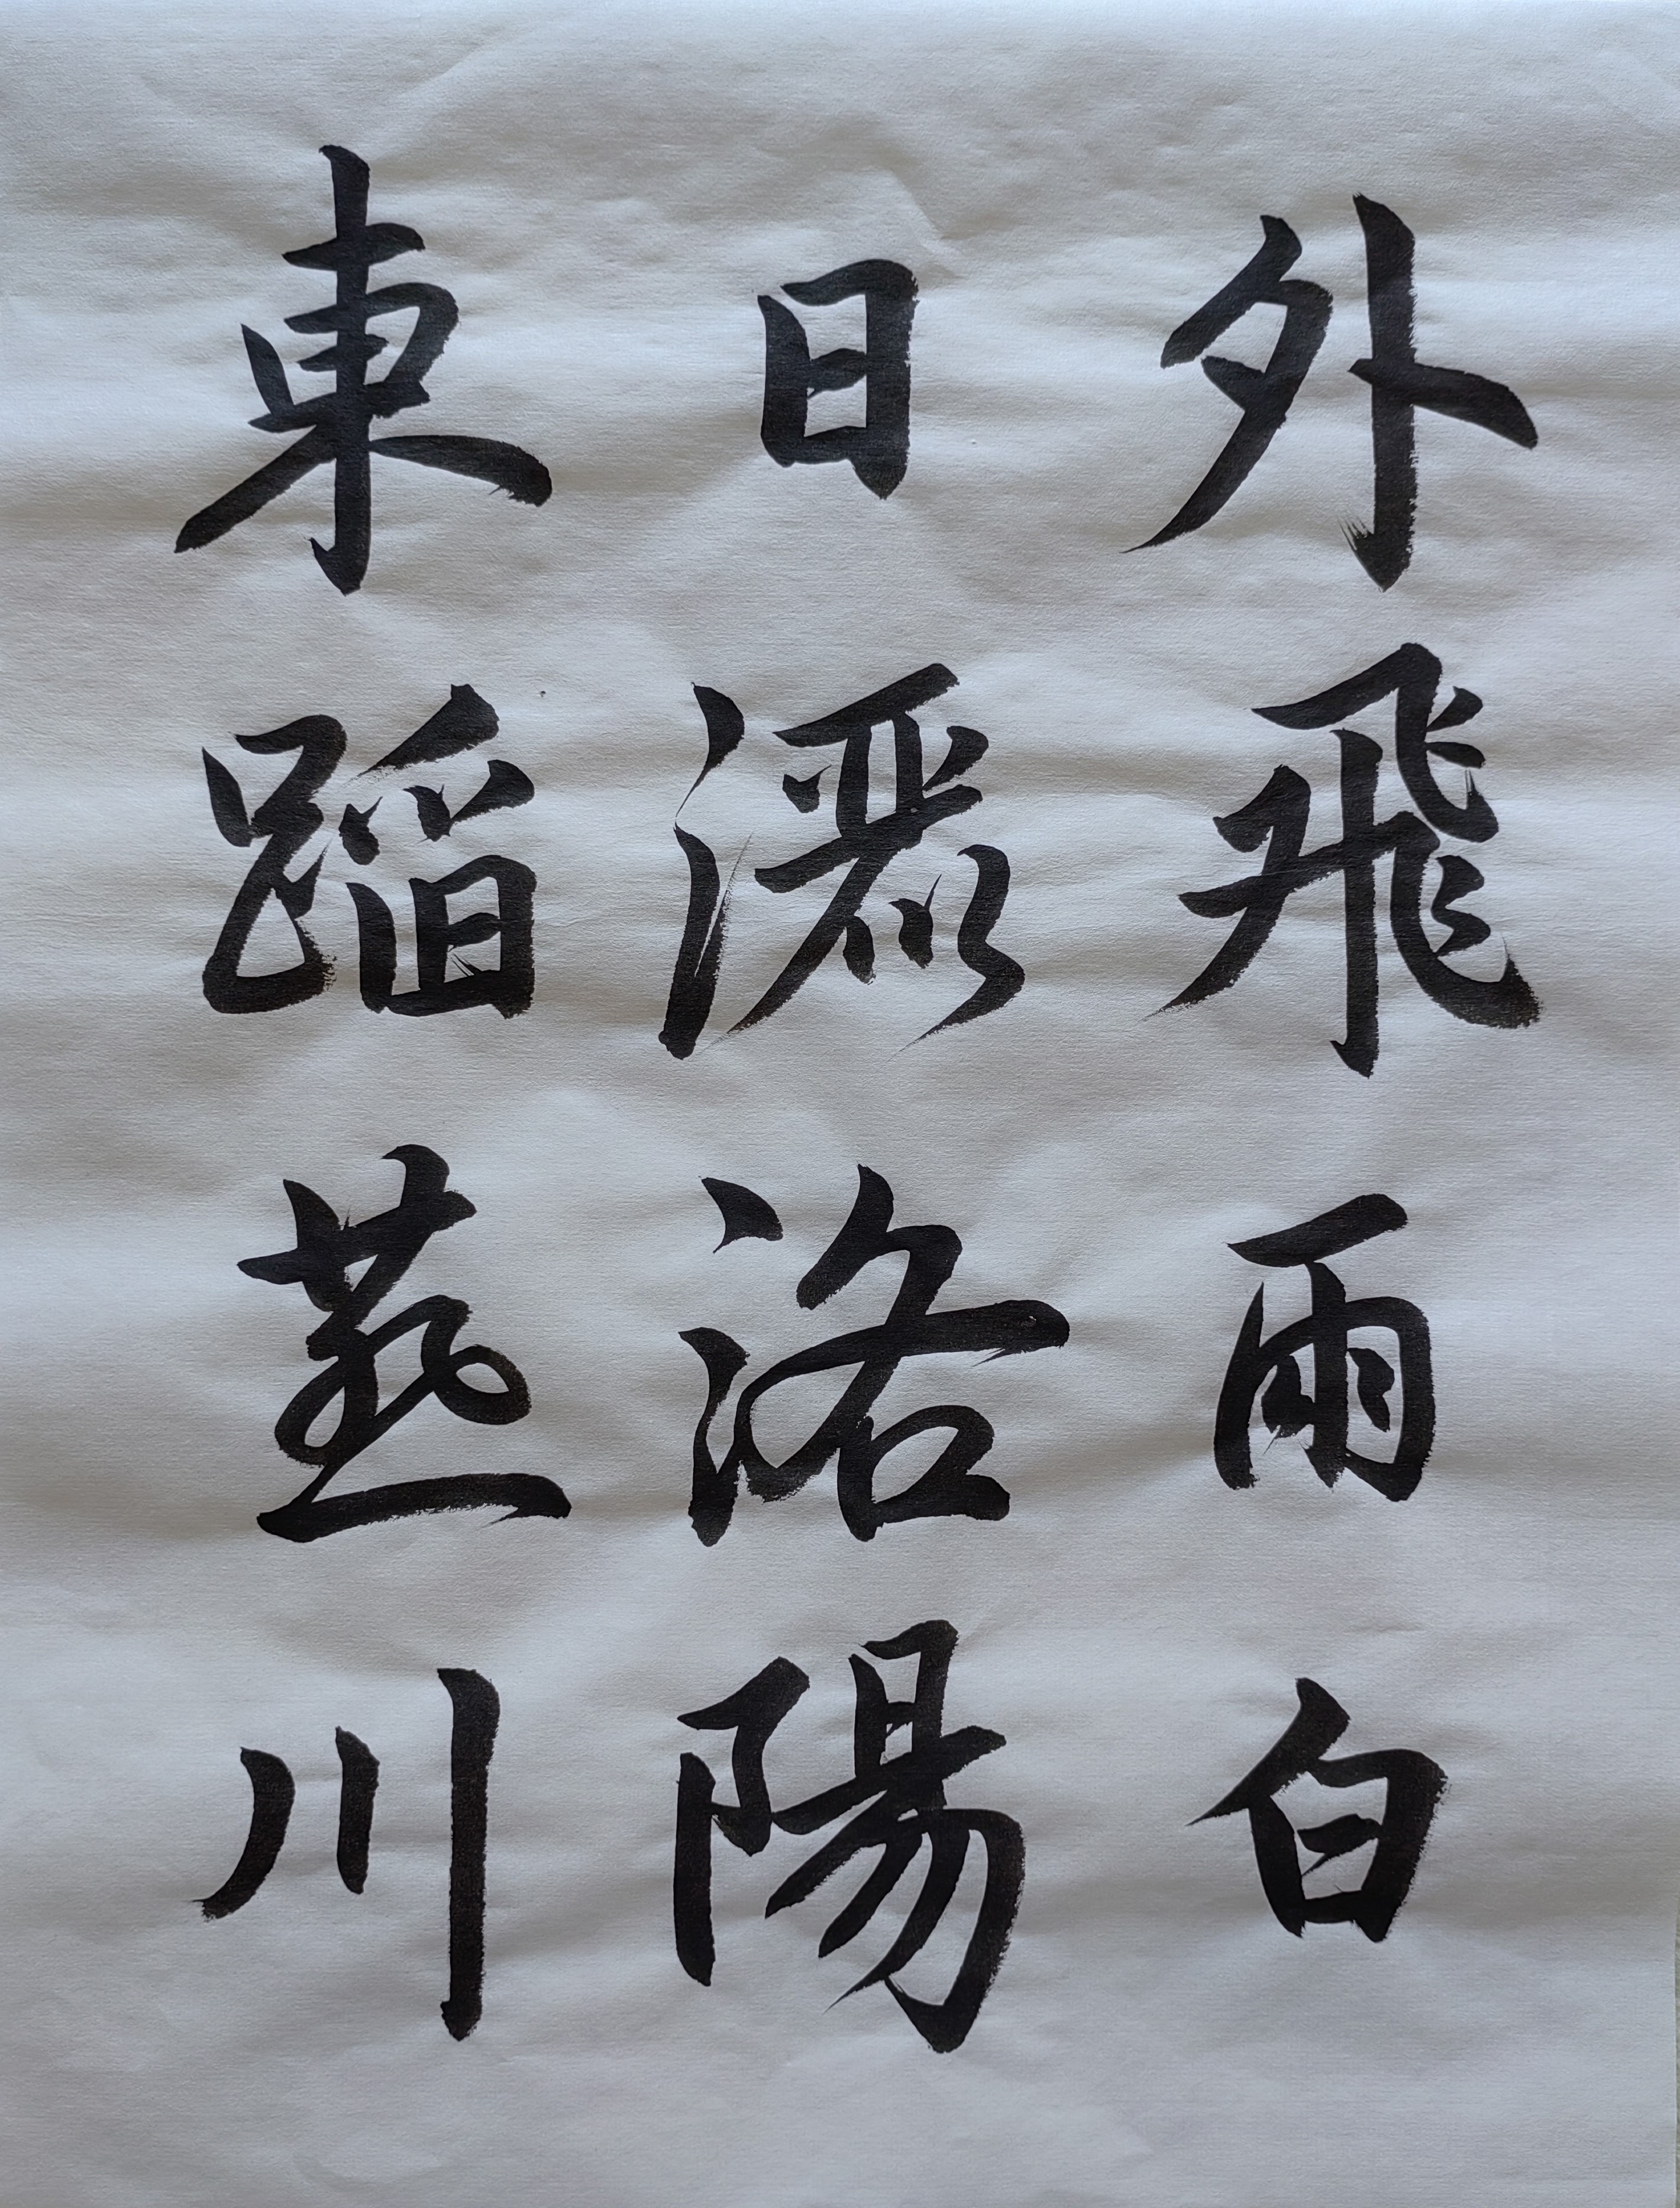 外飛雨白
日灑洛陽
東蹈燕川